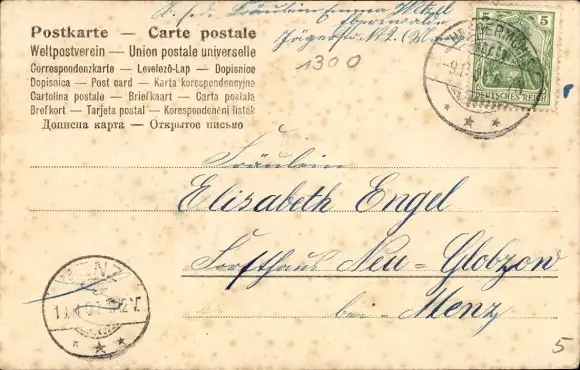 S. s. Fräulein Emma Wetzel
Eberswalde
Jägerstr. № 2.
Postkarte — Carte postale
Weltpostverein — Union postale universelle
Correspondenzkarte — Levelező-Lap — Dopisnice
Dopisnica — Post card — Karta korespondencyjna
Cartolina postale — Briefkaart — Carta postala
Brefkort — Tarjeta postal — Korespondenční lístek
Дописна карта — Открытое письмо
1300
5 5
DEUTSCHES REICH
Fräulein
Elisabeth Engel
Forsthaus Neu-Globzow
bei Menz
MENZ
5